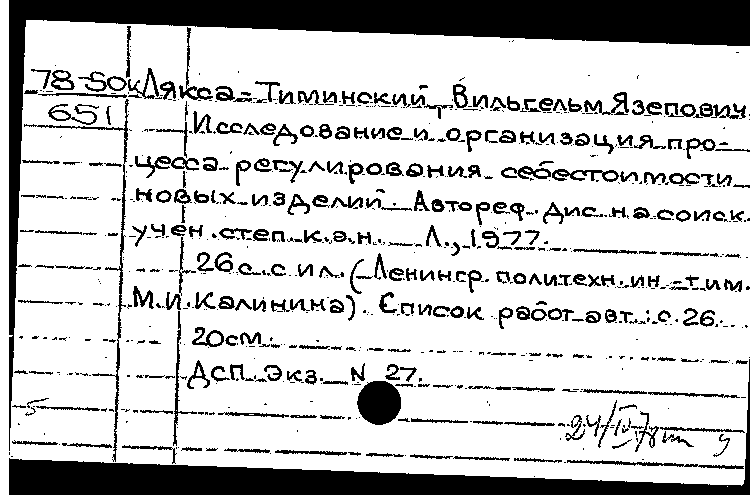 78-50к Лякса-Тиминский, Вильгельм Язепович.
651 Исследование и организация про-
цесса регулирования себестоимости
новых изделий. Автореф. дис. на соиск.
учен. степ. к.э.н. Л., 1977.
26 с. с ил. (Ленингр. политехн. ин-т им.
М.И. Калинина). Список работ авт.: с. 26.
20 см.
ДСП. Экз. N 27.
5
24/IV 78